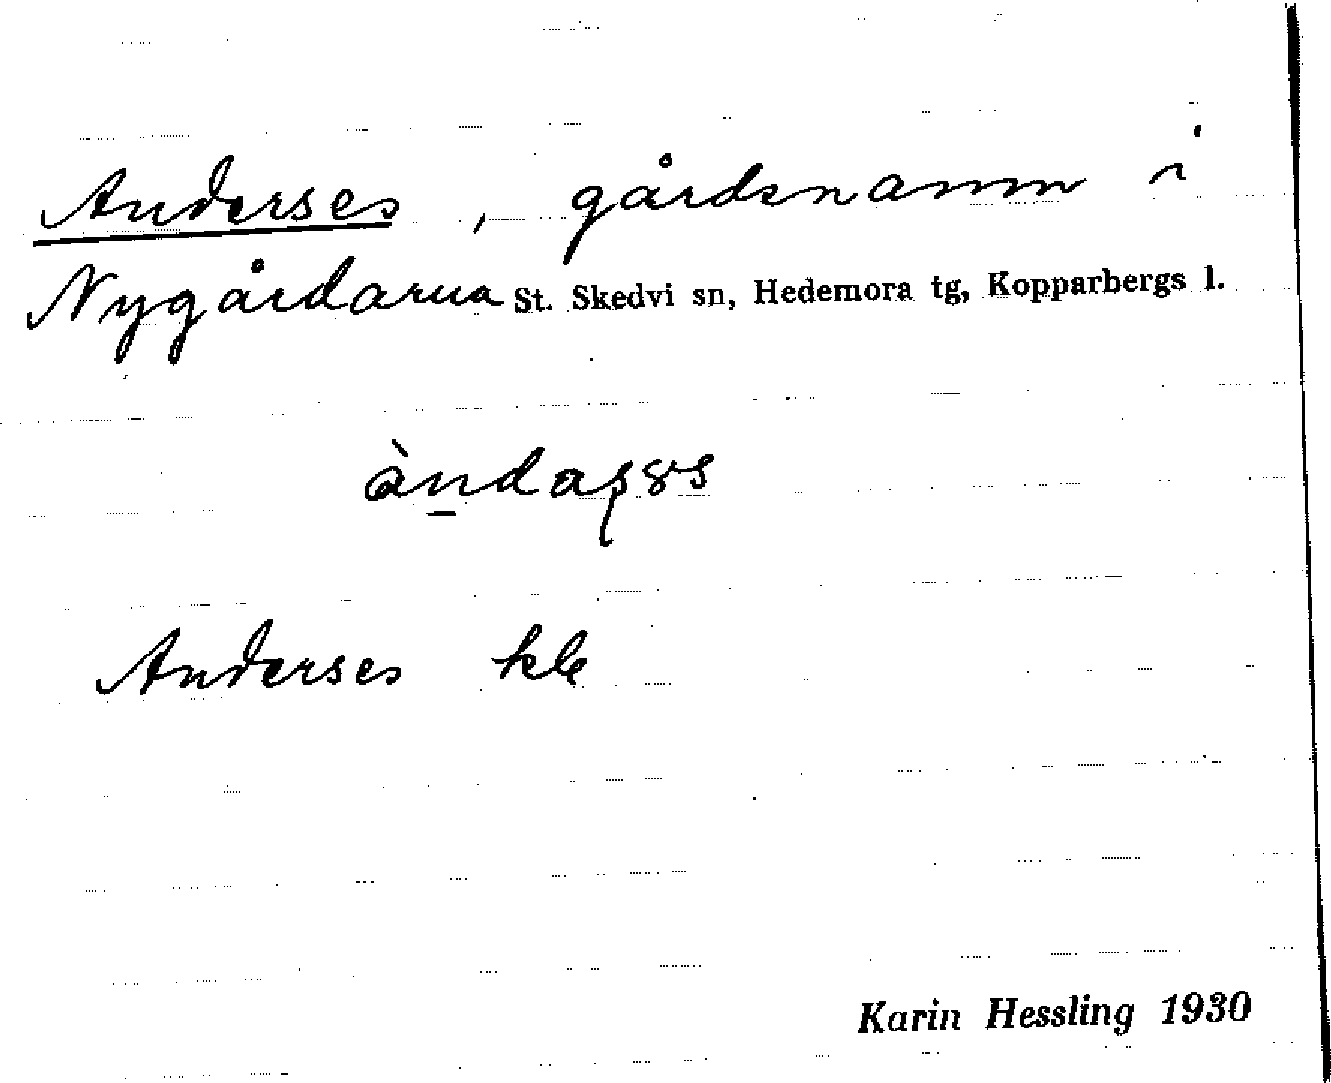 Anderses, gårdsnamn i
Nygårdarna St. Skedvi sn, Hedemora tg, Kopparbergs l.
Anderses kle
Karin Hessling 1930